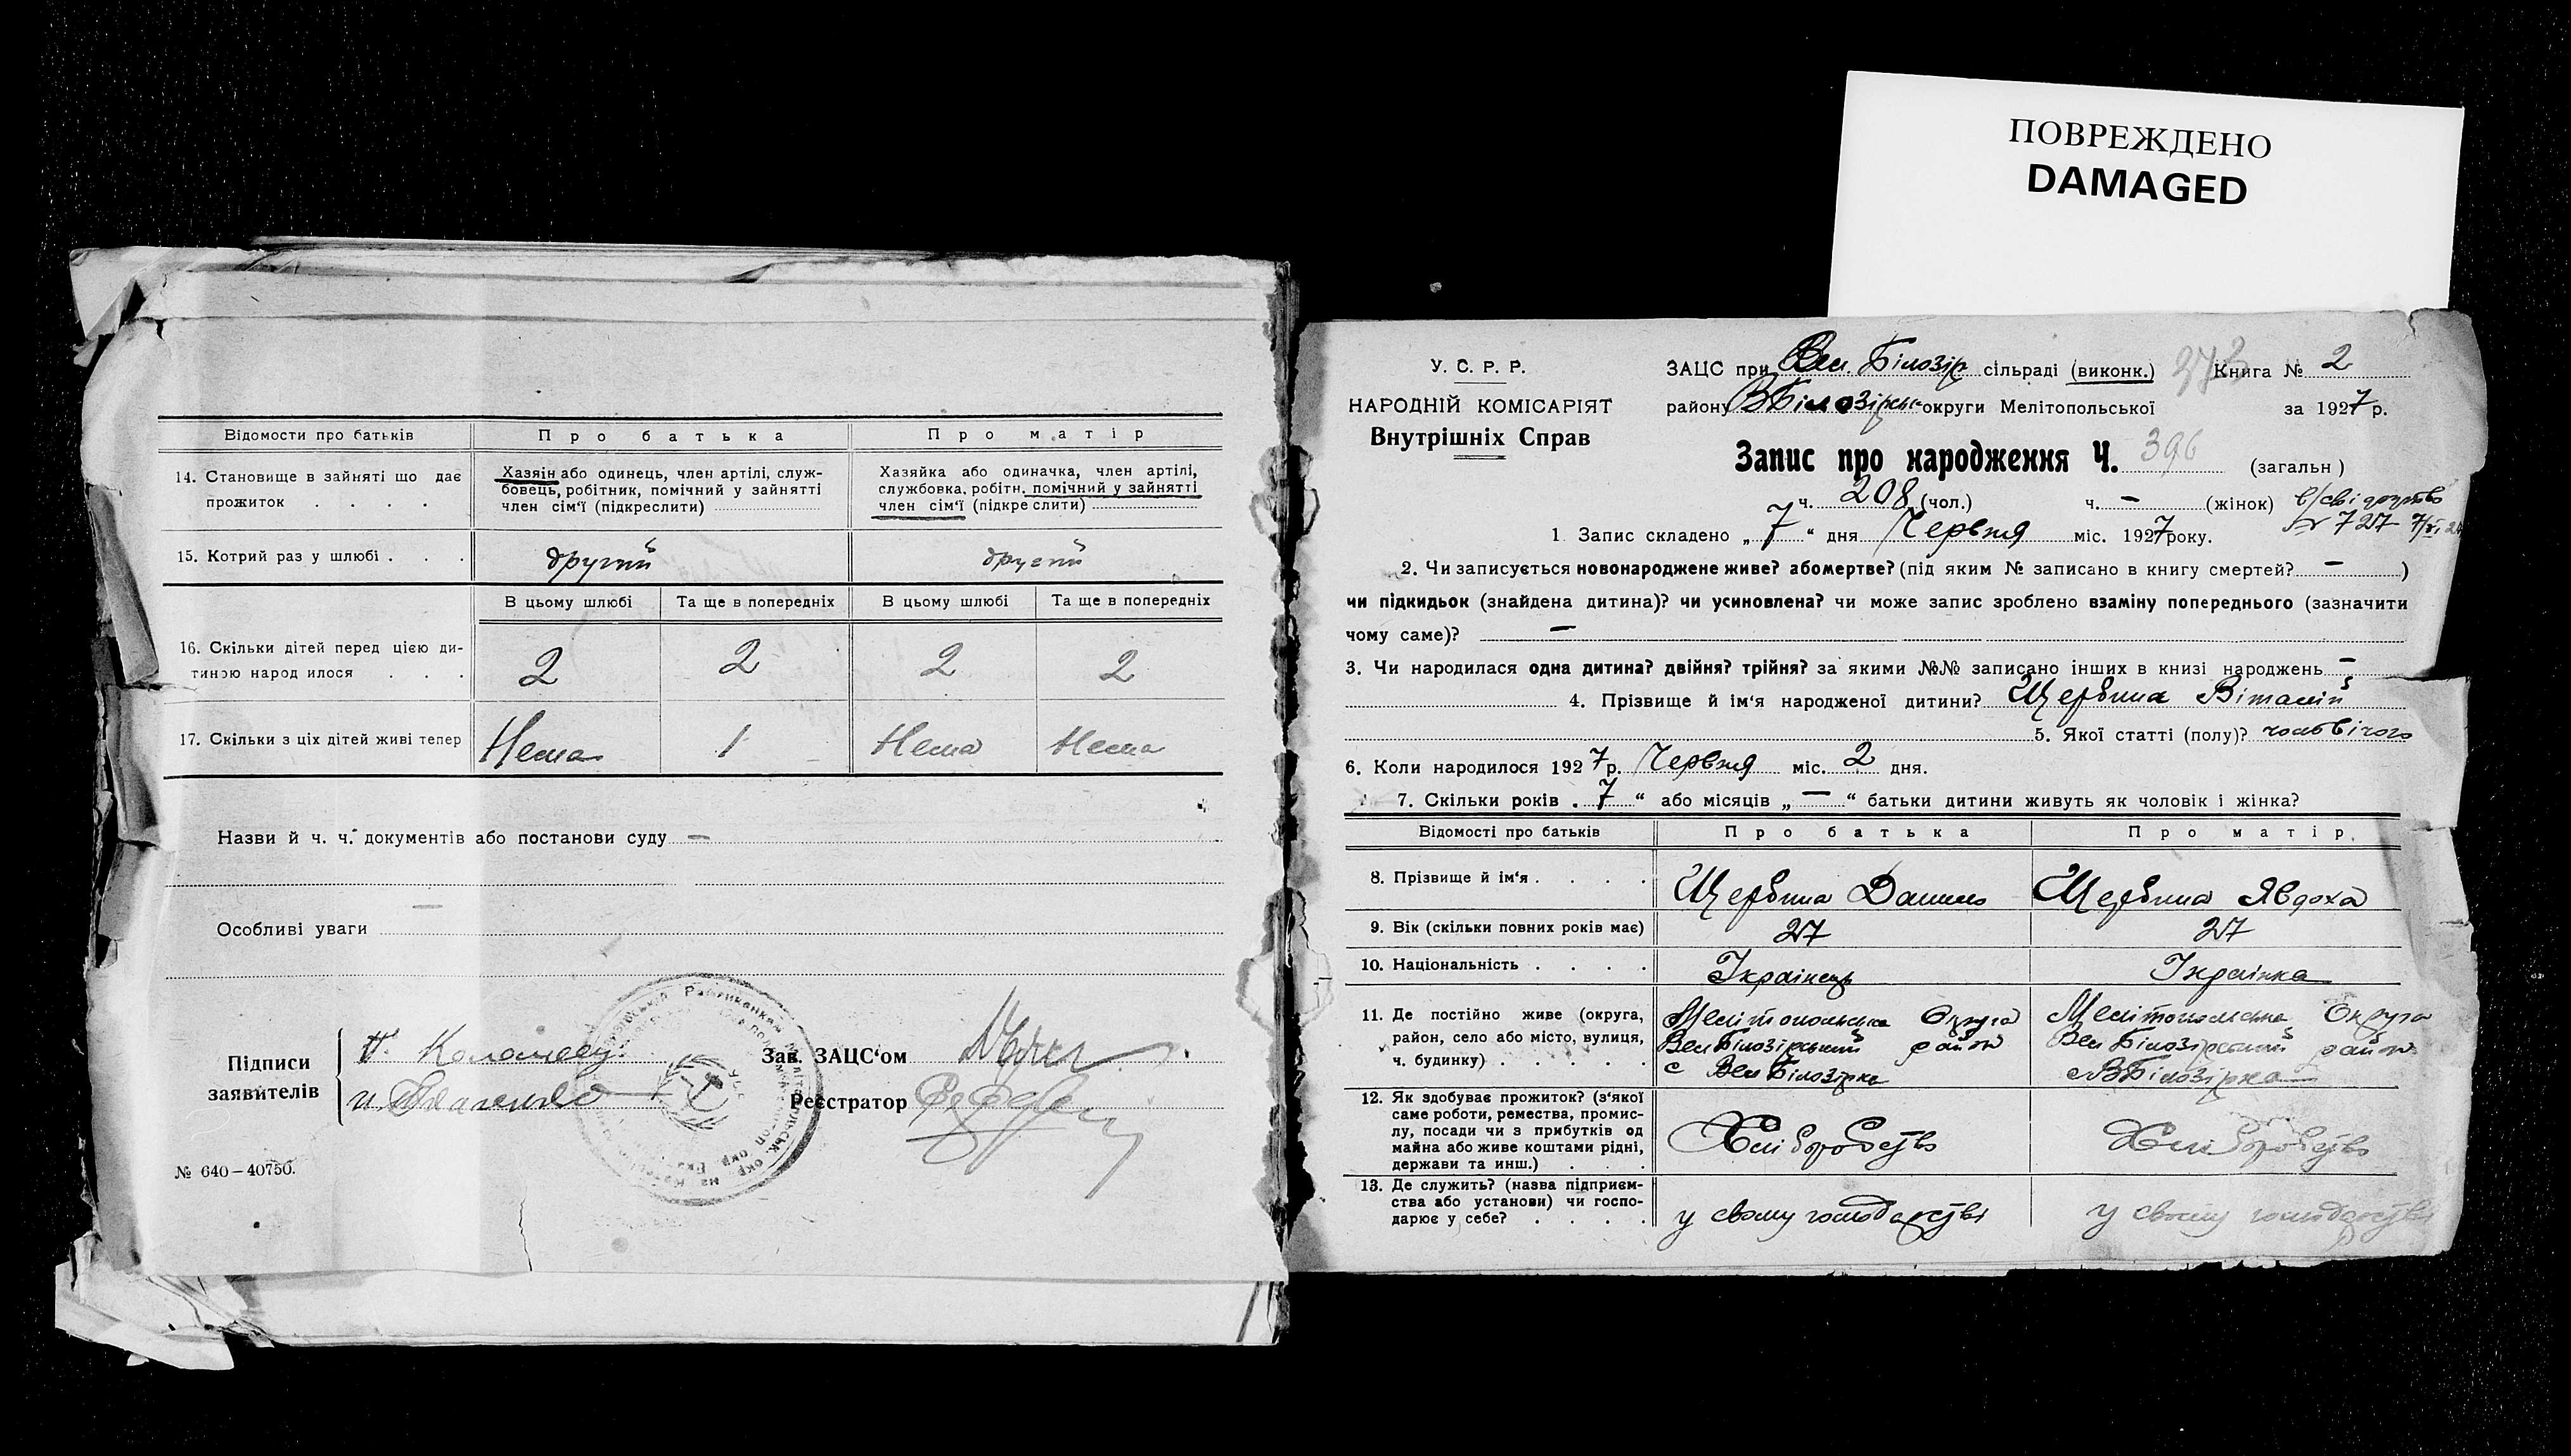 ПОВРЕЖДЕНО
DAMAGED
Відомости про батьків Про батька Про матір
14. Становище в зайняті що дає прожиток . . . .
Хазяін або одинець, член артілі, служ-
бовець, робітник, помічний у зайнятті
член сім'ї (підкреслити)
Хазяйка або одиначка, член артілі,
службовка, робітн. помічний у зайнятті
член сім'ї (підкреслити)
15. Котрий раз у шлюбі . . . другий другий
В цьому шлюбі Та ще в попередніх В цьому шлюбі Та ще в попередніх
16. Скільки дітей перед цією ди-
тиною народилося . . . 2 2 2 2
17. Скільки з ціх дітей живі тепер Нема 1 Нема Нема
Назви й ч. ч. документів або постанови суду —
Особливі уваги —
Підписи
заявителів
Зав. ЗАЦС'ом
Реєстратор
№ 640–40750.
У. С. Р. Р.
НАРОДНІЙ КОМІСАРІЯТ
Внутрішніх Справ
ЗАЦС при Вел. Білозір сільраді (виконк.) 273 Книга № 2
району ВБілозірськ округи Мелітопольської за 1927 р.
Запис про народження Ч. 396 (загальн)
ч. 208 (чол.) ч. — (жінок)
1 Запис складено „ 7 “ дня Червня міс. 1927 року.
2. Чи записується новонароджене живе? або мертве? (під яким № записано в книгу смертей? — )
чи підкидьок (знайдена дитина)? чи усиновлена? чи може запис зроблено взаміну попереднього (зазначити
чому саме)? —
3. Чи народилася одна дитина? двійня? трійня? за якими №№ записано інших в книзі народжень —
4. Прізвище й ім'я народженої дитини? Щербина Віталій
5. Якої статті (полу)? чоловічого
6. Коли народилося 1927 р. Червня міс. 2 дня.
7. Скільки років „ 7 “ або місяців „ — “ батьки дитини живуть як чоловік і жінка?
Відомості про батьків Про батька Про матір
8. Прізвище й ім'я . . . . Щербина Данило Щербина Явдоха
9. Вік (скільки повних років має) 27 27
10. Національність . . . . Українець Українка
11. Де постійно живе (округа,
район, село або місто, вулиця,
ч. будинку) . . . . .
Мелітопольська Округа
Вел Білозірський район
с Вел Білозірка
Мелітопольська Округа
Вел Білозірський район
с ВБілозірка
12. Як здобуває прожиток? (з'якої
саме роботи, ремества, промис-
лу, посади чи з прибутків од
майна або живе коштами рідні,
держави та инш.) . . .
Хліборобство
Хліборобство
13. Де служить? (назва підприєм-
ства або установи) чи госпо-
дарює у себе? . . . .
у свому господарстві
у свому господарстві